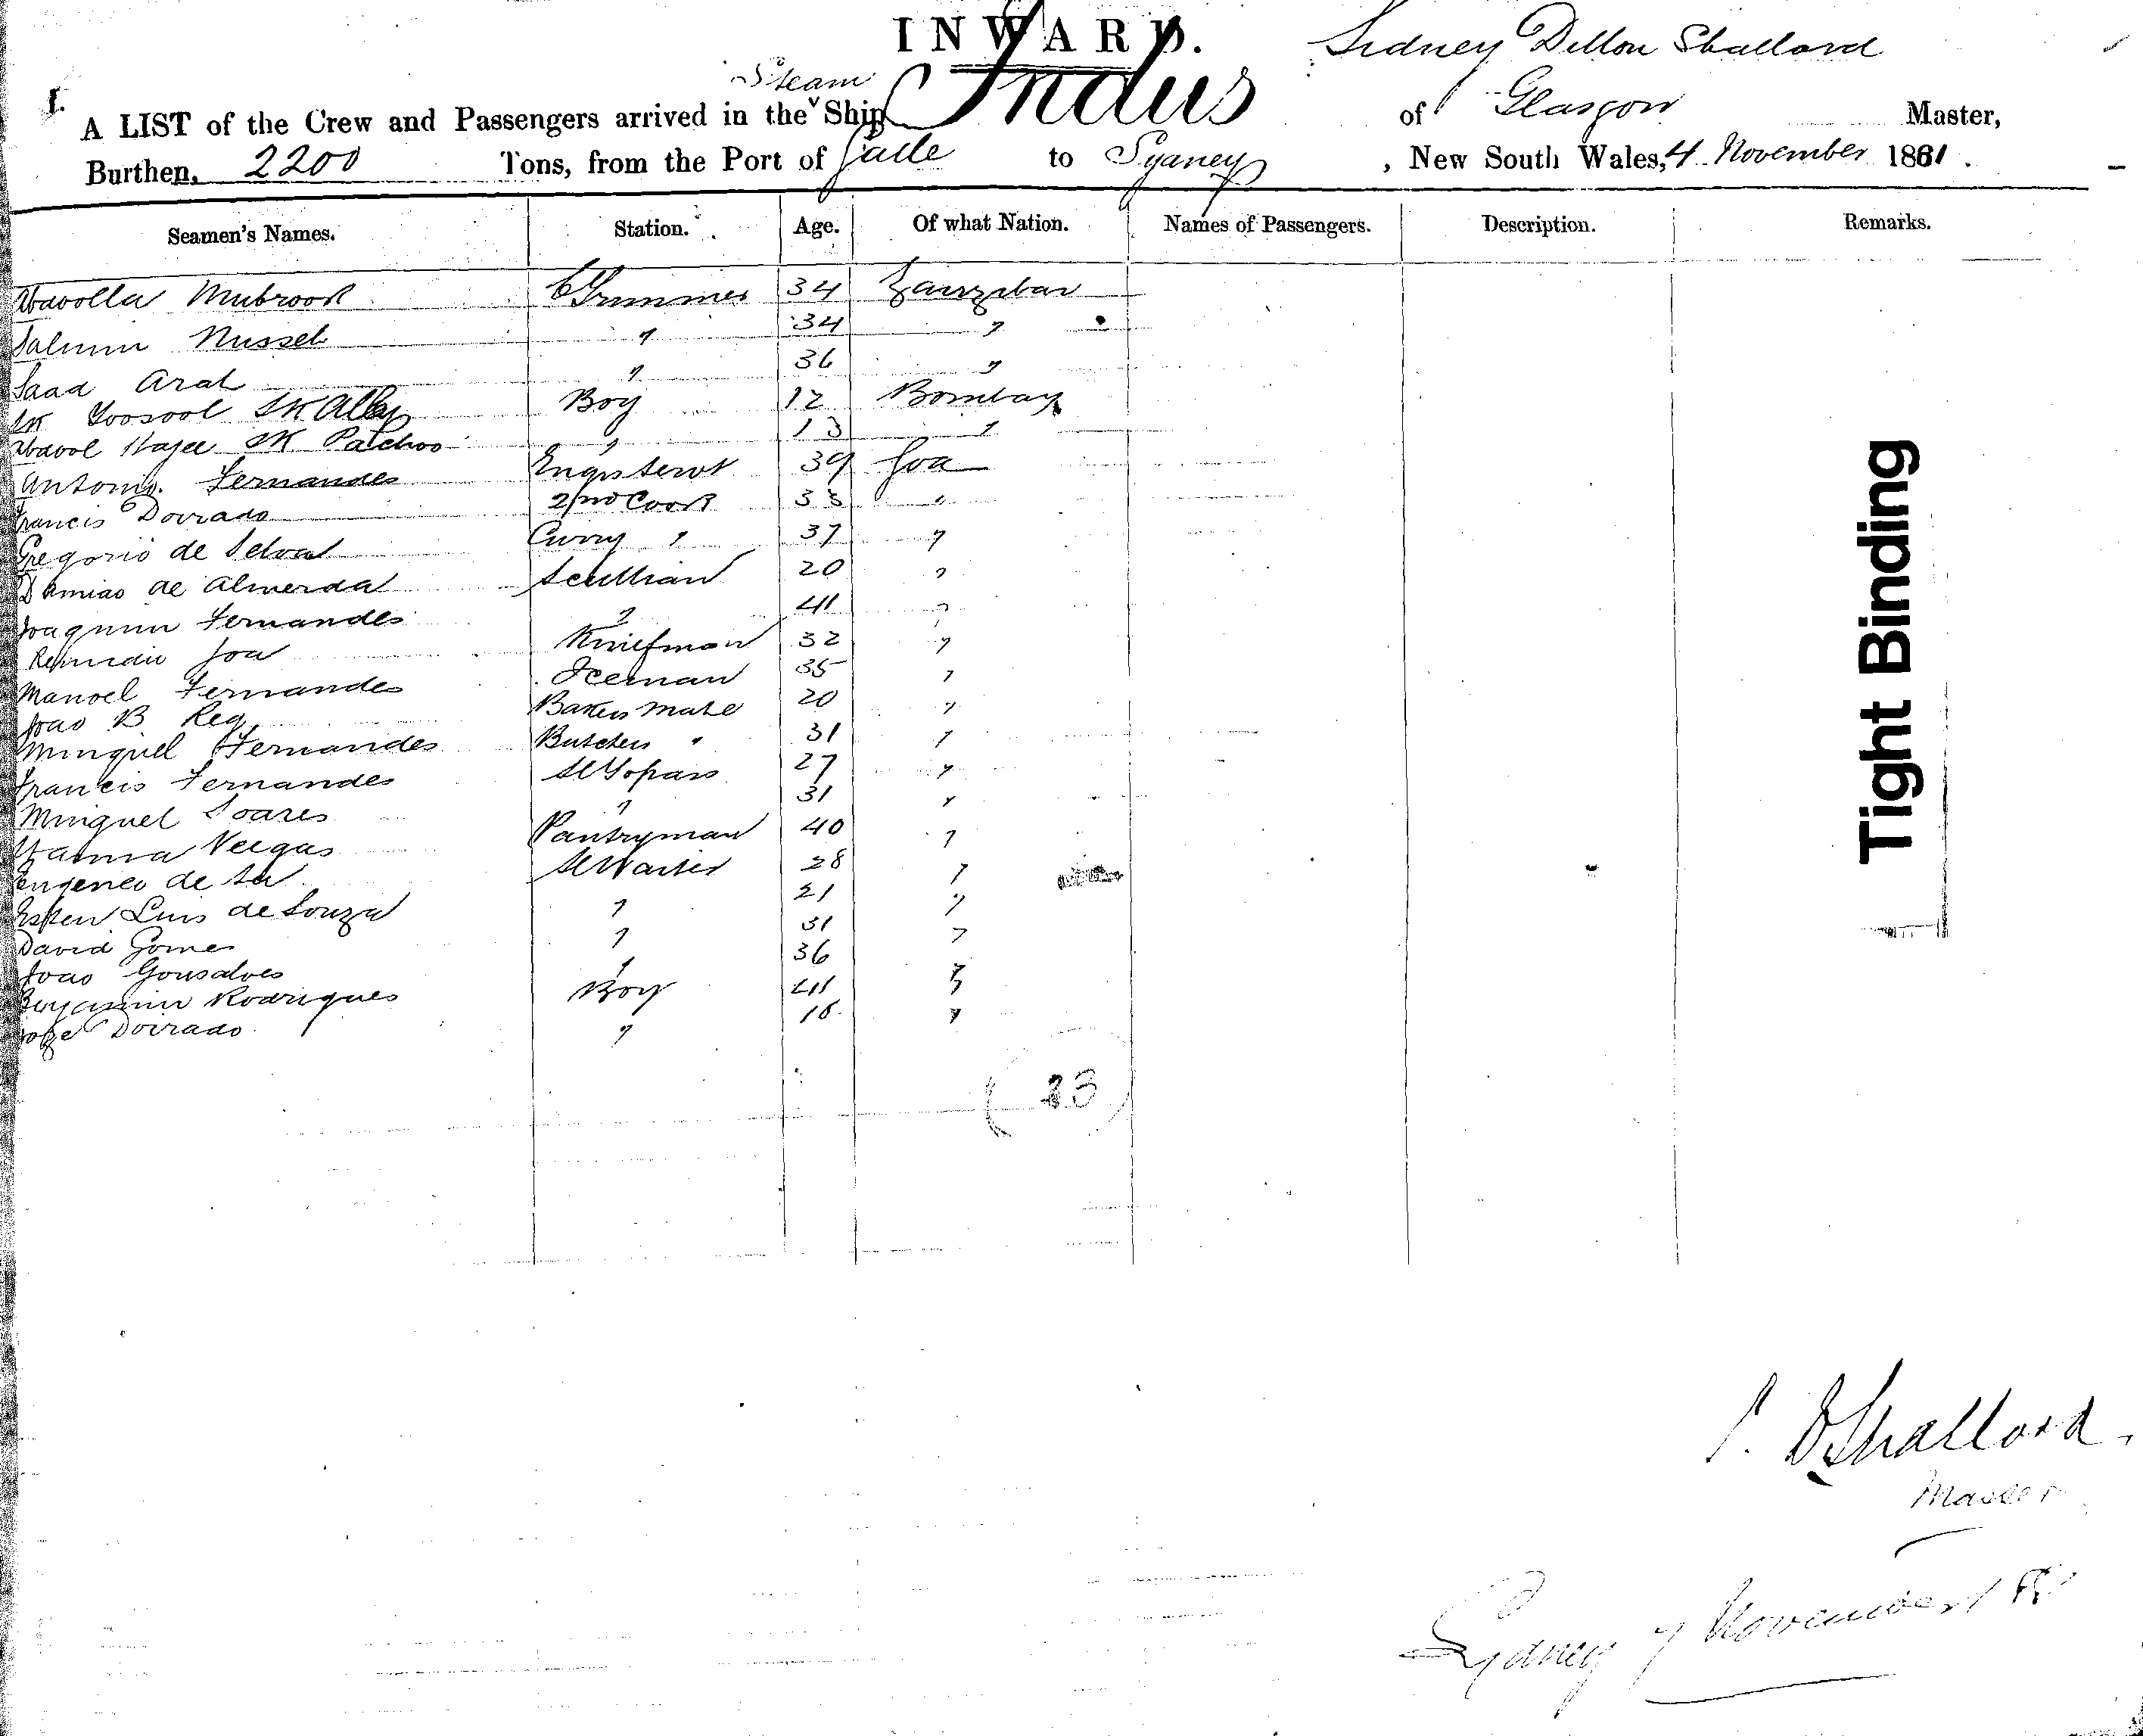 INWARD.
Sidney Dillon Shallard
Steam
A LIST of the Crew and Passengers arrived in the Ship Indus of Glasgow Master,
Burthen, 2200 Tons, from the Port of Galle to Sydney, New South Wales, 4 November 1881.
Seamen's Names. Station. Age. Of what Nation. Names of Passengers. Description. Remarks.
Abavolla Mubrook C Trimmer 34 Zanzibar
Salmin Nussel " 34 "
Saad Arat " 36 "
Sk Yoosool SK Ally Boy 12 Bombay
SK Patchoo " 13 "
Antonio Fernandes Engrs Servt 39 Goa
Francis Dorrado 2/nd Cook 33 "
Gregorio de Selva Curry " 37 "
Damiao de Almerda Scullian 20 "
Joaquim Fernandes " 41 "
Knifeman 32 "
Manoel Fernandes Iceman 35 "
Joao B Reg Bakers Mate 20 "
Minguel Fernandes Butchers " 31 "
Francis Fernandes 27 "
Minguel Soares " 31 "
Veegas Pantryman 40 "
de Sa 28 "
Luis de Souza " 21 "
David Gomes " 31 "
Joao Gonsalves " 36 "
Benjamin Rodrigues Boy 41 "
Dorrado " 16 "
(23)
Tight Binding
S. D Shallard.
Master
Sydney 7 November / 81